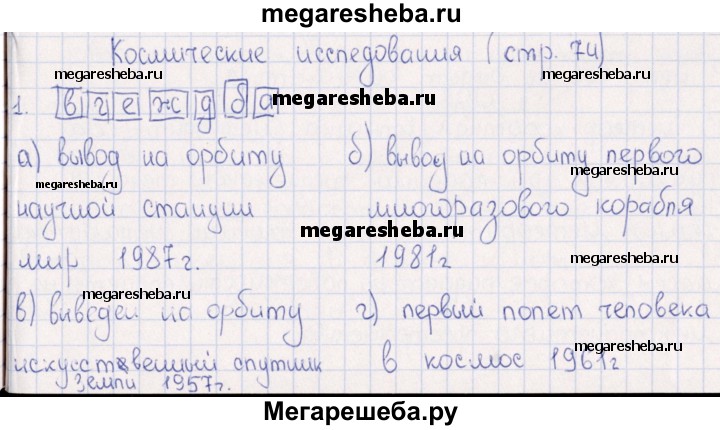 megaresheba.ru
Космические исследования (стр. 74)
megaresheba.ru megaresheba.ru
1. в г е ж д б а megaresheba.ru
а) вывод на орбиту б) вывод на орбиту первого
megaresheba.ru
megaresheba.ru
научной станции многоразового корабля
megaresheba.ru
мир 1987г. 1981г
megaresheba.ru
megaresheba.ru
в) выведен на орбиту г) первый полет человека
искусственный спутник в космос 1961г
megaresheba.ru
Земли 1957г.
Мегарешеба.ру